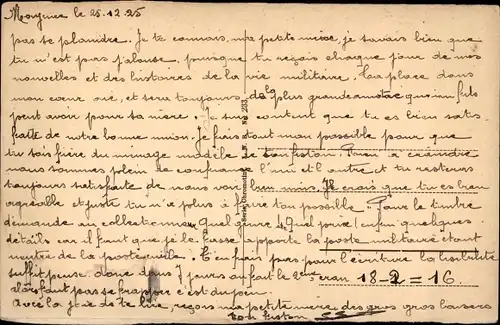 Mayence le 25.12.25
pas se plaindre. Je te connais, ma petite mère, je savais bien que
tu n'est pas jalouse, puisque tu reçois chaque jour de mes
nouvelles et des histoires de la vie militaire. Ta place dans
mon cœur où, et sera toujours de la plus grande qu'un fils
peut avoir pour sa mère. Je suis content que tu es bien satis-
faite de notre bonne union. Je ferais tout mon possible pour que
tu sois fière du ménage modèle de ton fiston. Rien à craindre
nous sommes plein de confiance l'un et l'autre et tu resteras
toujours satisfaite de nous voir bien unis. Je crois que tu es bien
agréable et juste tu n'a plus à faire ton possible. Pour le timbre
demande au collectionneur Quel genre? Quel prix? enfin quelques
détails car il faut que je le fasse apporté la poste militaire étant
neutre de la poste civile. T'en fais pas pour l'écriture la lisibilité
suffit donc dans 7 jours au fait le 2ème, 18-2=16.
Alors faut pas se frapper c'est du
Avec la joie de te lire, reçois ma petite mère des gros gros baisers
ton fiston
Série Dumoustier N° 233